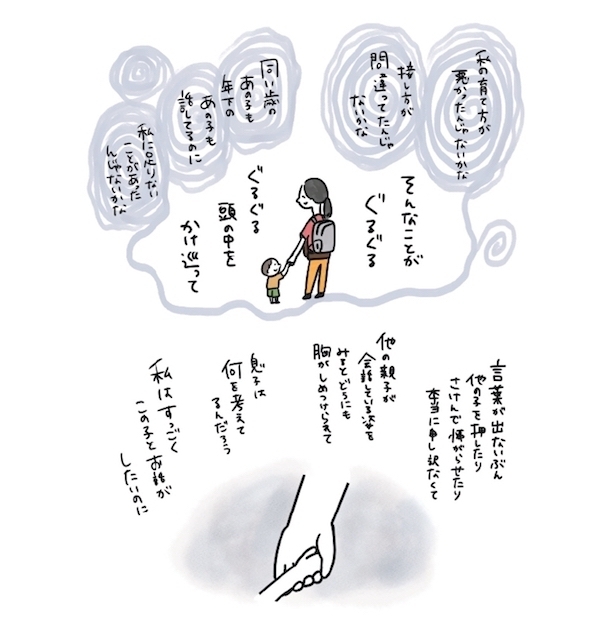 私の育て方が
悪かったんじゃないかな
接し方が
間違ってたんじゃ
ないかな
同い歳の
あの子も
年下の
あの子も
話してるのに
私に足りない
ことがあった
んじゃないかな
そんなことが
ぐるぐる
ぐるぐる
頭の中を
かけ巡って
言葉が出ないぶん
他の子を押したり
さけんで怖がらせたり
本当に申し訳なくて
他の親子が
会話している姿を
みるとどうにも
胸がしめつけられて
息子は
何を考えて
るんだろう
私はすっごく
この子とお話が
したいのに